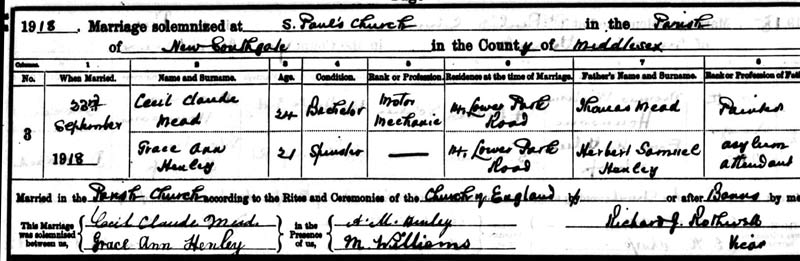 1918. Marriage solemnized at S. Paul's Church in the Parish
of New Southgate in the County of Middlesex
Columns. 1 2 3 4 5 6 7 8
No. When Married. Name and Surname. Age. Condition. Rank or Profession. Residence at the time of Marriage. Father's Name and Surname. Rank or Profession of Fat
8 September 1918
Cecil Claude Mead 24 Bachelor Motor Mechanic Lower Park Road Thomas Mead Painter
Grace Ann Henley 21 Spinster — Lower Park Road Herbert Samuel Henley asylum attendant
Married in the Parish Church according to the Rites and Ceremonies of the Church of England by or after Banns by me
This Marriage was solemnized between us, Cecil Claude Mead. Grace Ann Henley
in the Presence of us, A. M. Henley M. Williams
Richard J. Vicar